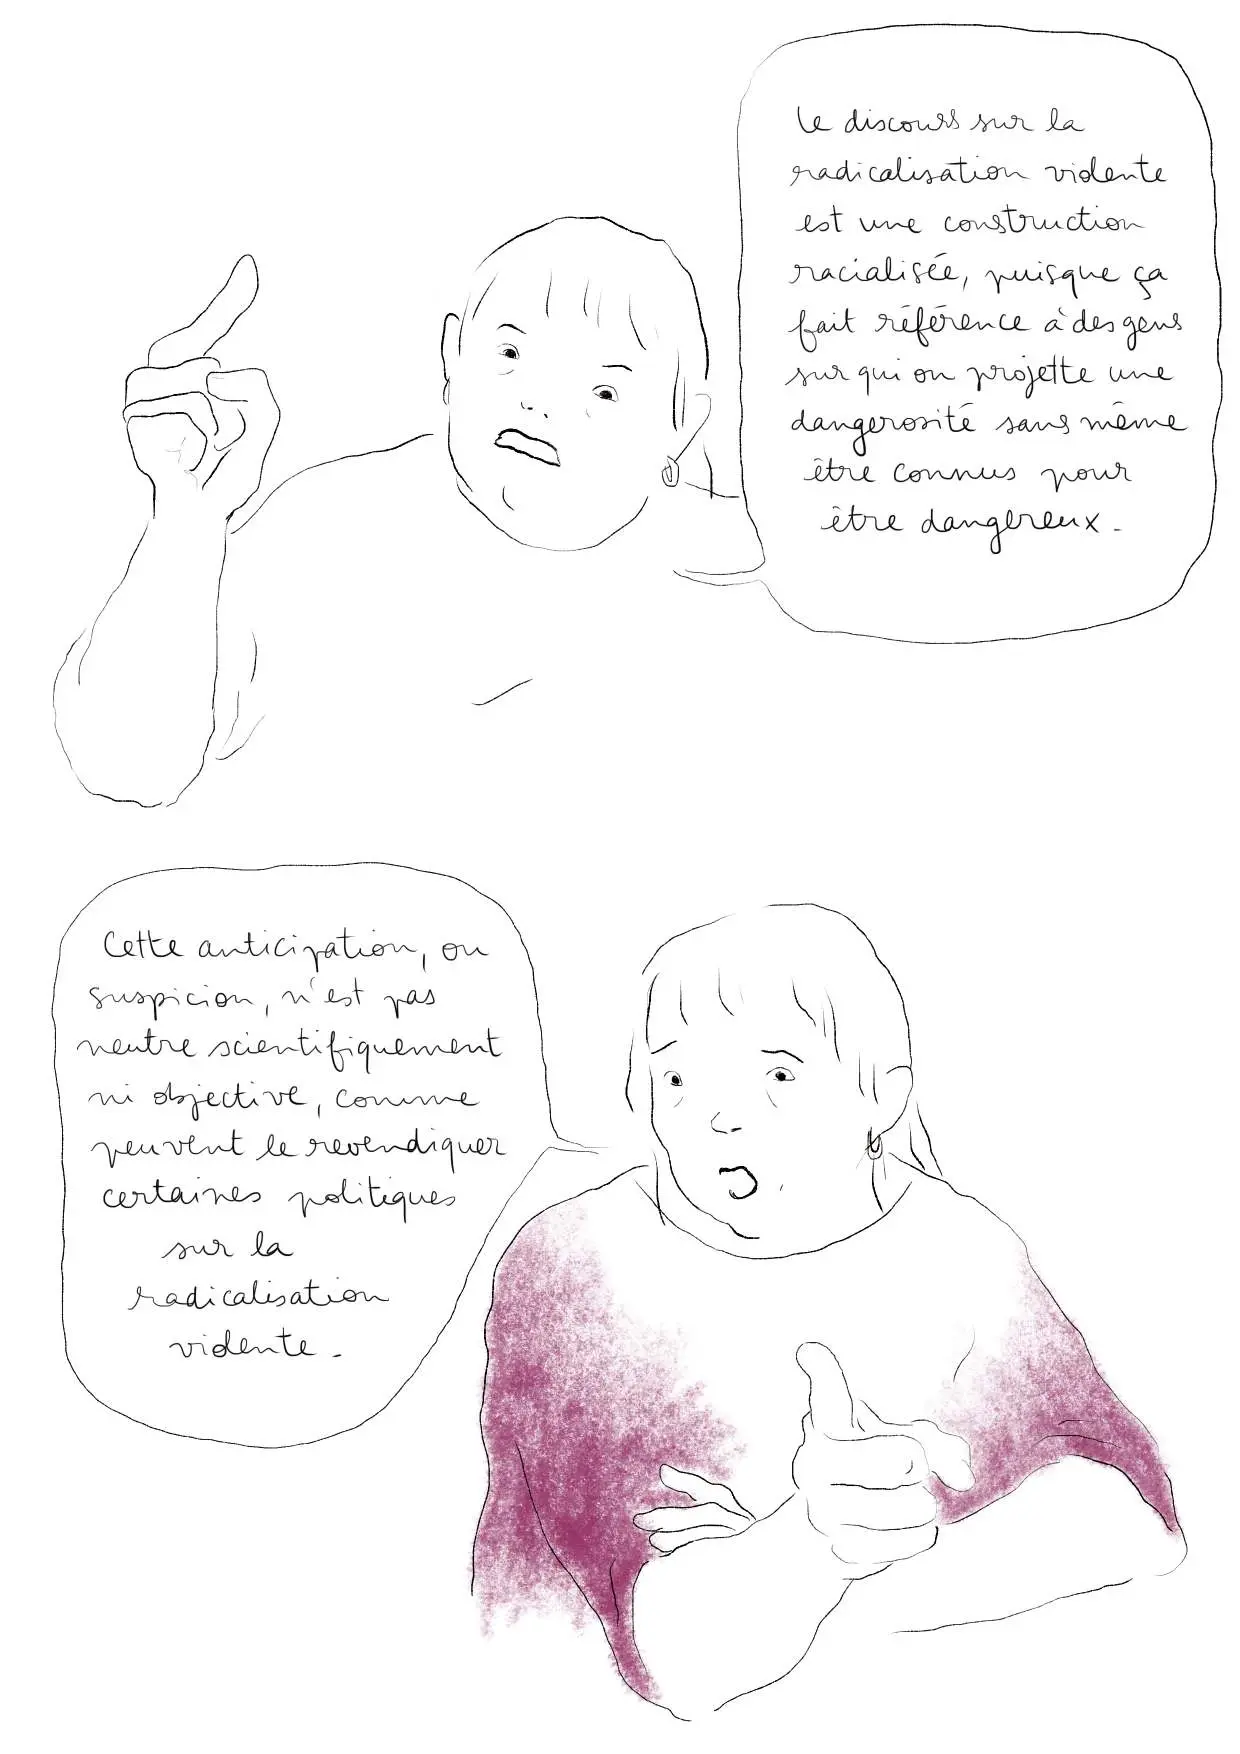 Le discours sur la
radicalisation violente
est une construction
racialisée, puisque ça
fait référence à des gens
sur qui on projette une
dangerosité sans même
être connus pour
être dangereux.
Cette anticipation, ou
suspicion, n'est pas
neutre scientifiquement
ni objective, comme
peuvent le revendiquer
certaines politiques
sur la
radicalisation
violente.